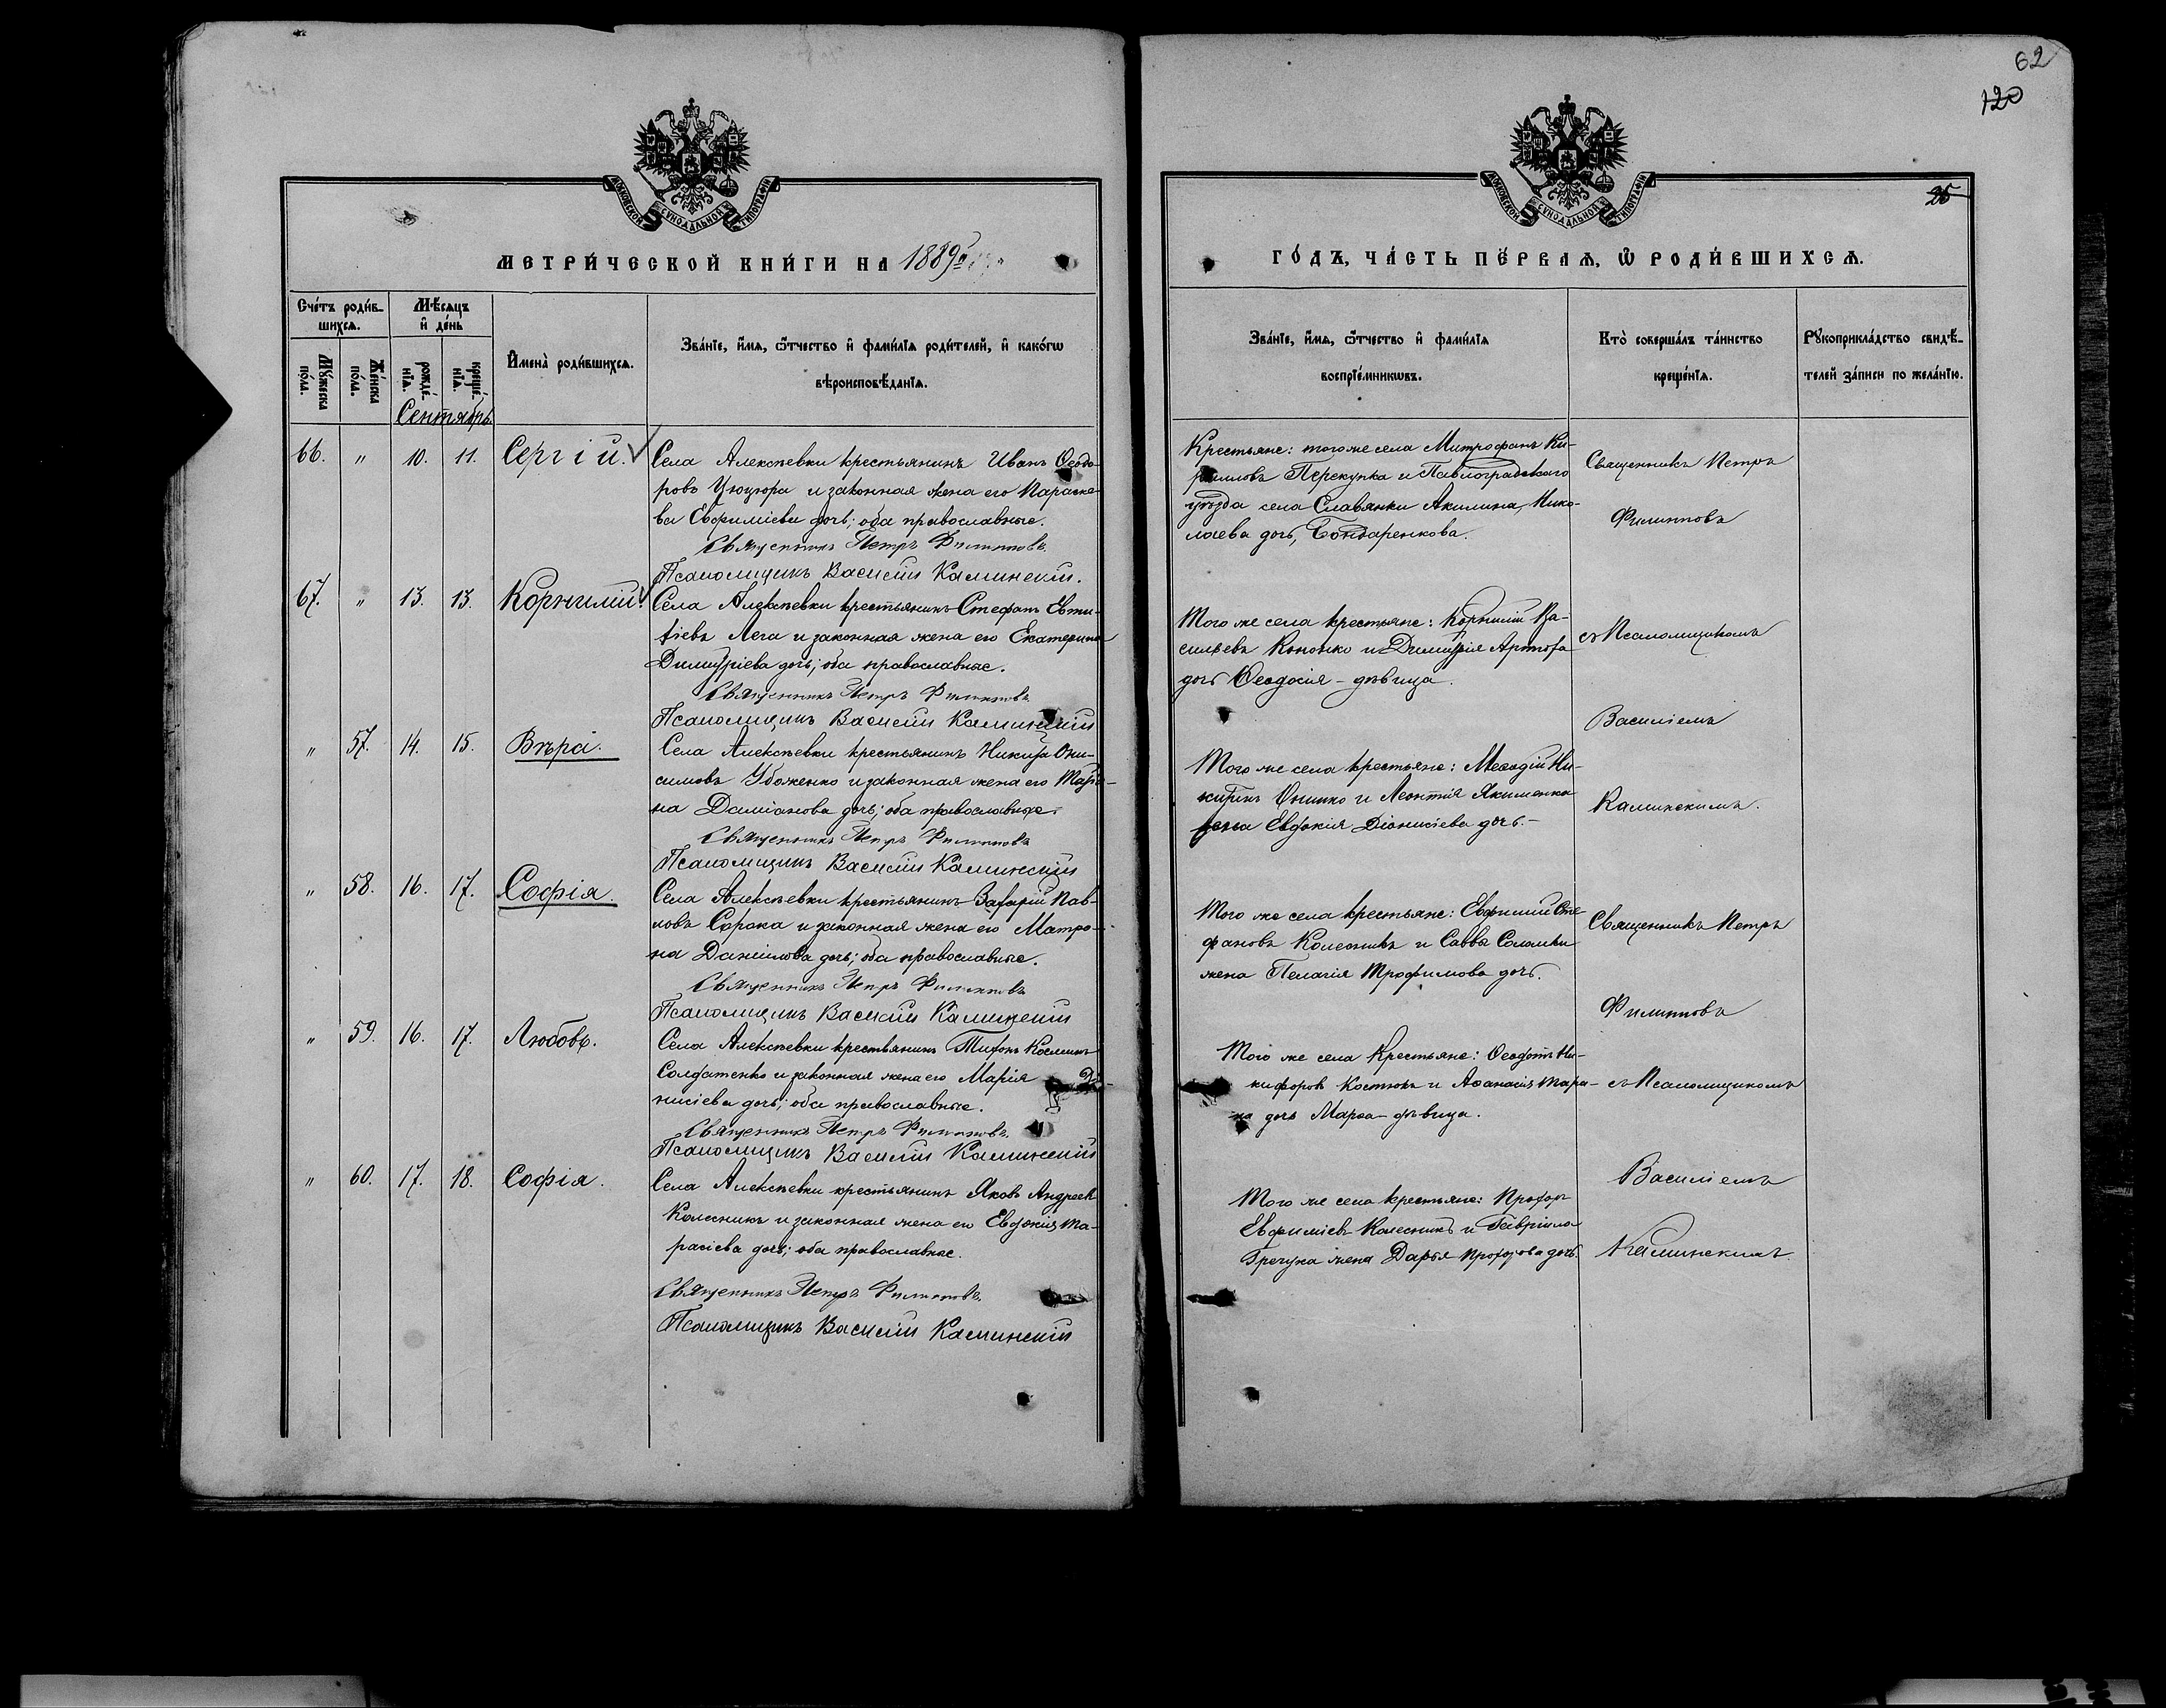 62
120
25
МОСКОВСКОЙ СУНОДАЛЬНОЙ ТИПОГРАФІИ
МОСКОВСКОЙ СУНОДАЛЬНОЙ ТИПОГРАФІИ
МЕТРИ́ЧЕСКОЙ КНИ́ГИ НА 1889й
ГО́ДЪ, ЧА́СТЬ ПЕ́РВАѦ, Ѿ РОДИ́ВШИХСѦ.
Сче́тъ роди́в-
шихсѧ.
Мꙋ́жеска по́ла.
Же́нска по́ла.
Мѣ́сѧцъ
и҆ де́нь
рожде́-
нїѧ.
креще́-
нїѧ.
И҆мена̀ роди́вшихсѧ.
Зва́нїе, и҆́мѧ, ѻ҆́тчество и҆ фами́лїѧ роди́телей, и҆ како́гѡ
вѣроисповѣ́данїѧ.
Зва́нїе, и҆́мѧ, ѻ҆́тчество и҆ фами́лїѧ
воспрїе́мникѡвъ.
Кто̀ соверша́лъ та́инство
креще́нїѧ.
Рꙋкоприкла́дство свидѣ́-
телей за́писи по жела́нїю.
Сентябрь.
66. " 10. 11. Сергій.
Села Алексѣевки крестьянинъ Иванъ Ѳеодо-
ровъ Цюцюра и законная жена его Параске-
ва Евфиміева дочь; оба православные.
Священникъ Петръ Филипповъ.
Псаломщикъ Василій Каминскій.
Крестьяне: того же села Митрофанъ Ки-
рилловъ Перекупка и Павлоградскаго
уѣзда села Славянки Акилина, Нико-
лаева дочь, Бондаренкова.
Священникъ Петръ
Филипповъ
67. " 13. 13. Корнилій.
Села Алексѣевки крестьянинъ Стефанъ Евти-
хіевъ Лега и законная жена его Екатерина
Димитріева дочь; оба православные.
Священникъ Петръ Филипповъ
Псаломщикъ Василій Каминскій
Того же села крестьяне: Корнилій Ва-
сильевъ Кононко и Димитрія
дочь Ѳеодосія - дѣвица.
съ Псаломщикомъ
Василіемъ
" 57. 14. 15. Вѣра.
Села Алексѣевки крестьянинъ Никита Они-
симовъ Убоженко и законная жена его Марі-
на Даміанова дочь; оба православные.
Священникъ Петръ Филипповъ
Псаломщикъ Василій Каминскій
Того же села крестьяне: Меѳодій Ни-
китинъ Онипко и Леонтія Якименка
жена Евдокія Діонисіева дочь. -
Каминскимъ.
" 58. 16. 17. Софія.
Села Алексѣевки крестьянинъ Захарій Пав-
ловъ Сорока и законная жена его Матро-
на Даніилова дочь; оба православные.
Священникъ Петръ Филипповъ
Псаломщикъ Василій Каминскій
Того же села крестьяне: Евфимій Сте-
фановъ Колесникъ и Саввы Соломки
жена Пелагія Трофимова дочь.
Священникъ Петръ
Филипповъ
" 59. 16. 17. Любовь.
Села Алексѣевки крестьянинъ Тихонъ Косминъ
Солдатенко и законная жена его Марія Діо-
нисіева дочь; оба православные.
Священникъ Петръ Филипповъ.
Псаломщикъ Василій Каминскій
Того же села Крестьяне: Ѳеодотъ Ни-
кифоровъ Костюкъ и Аѳанасія
дочь Марѳа - дѣвица.
съ Псаломщикомъ
Василіемъ
" 60. 17. 18. Софія.
Села Алексѣевки крестьянинъ Яковъ Андреевъ
Колесникъ и законная жена его Евдокія Та-
расіева дочь; оба православные.
Священникъ Петръ Филипповъ.
Псаломщикъ Василій Каминскій
Того же села крестьяне: Прохоръ
Евфиміевъ Колесникъ и Гавріила
Гречука жена Дарья Прохорова дочь.
Каминскимъ.